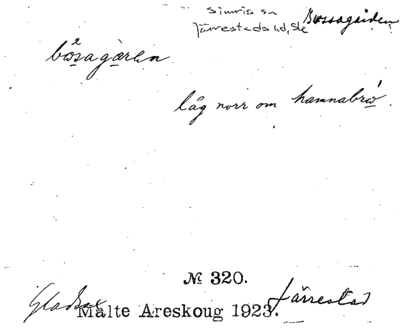 Simris sn
Järrestads hd, Sk
Bossagården
båsagàren
låg norr om hamnabró
№ 320.
Gladsax Malte Areskoug 1923. Järrestad